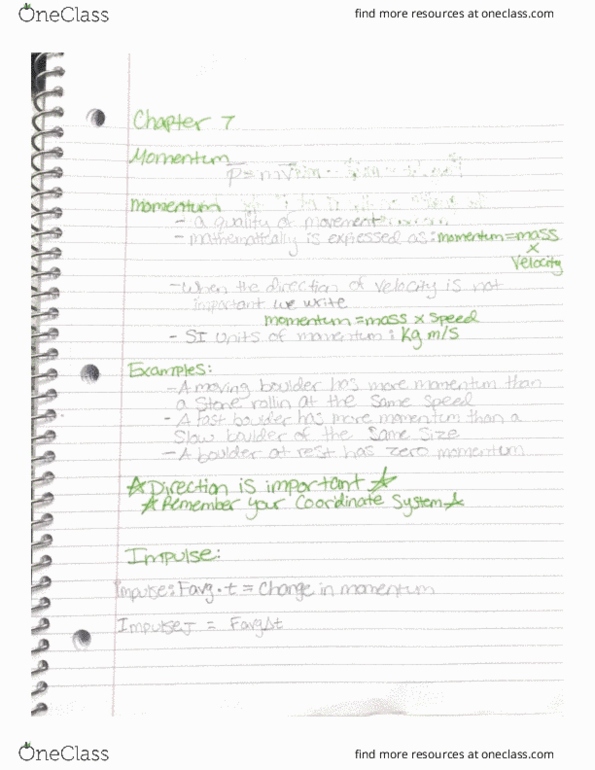 OneClass
find more resources at oneclass.com
Chapter 7
Momentum
p = mv
Momentum
- a quality of movement
- mathematically is expressed as: momentum = mass
x
Velocity
- When the direction of velocity is not
important we write
momentum = mass x speed
- SI units of momentum : kg m/s
Examples:
- A moving boulder has more momentum than
a Stone rollin at the same speed
- A fast boulder has more momentum than a
Slow boulder of the same size
- A boulder at rest has zero momentum
☆ Direction is important ☆
☆ Remember your Coordinate System ☆
Impulse:
Impulse: Favg · t = Change in momentum
Impulse J = Favg Δt
OneClass
find more resources at oneclass.com